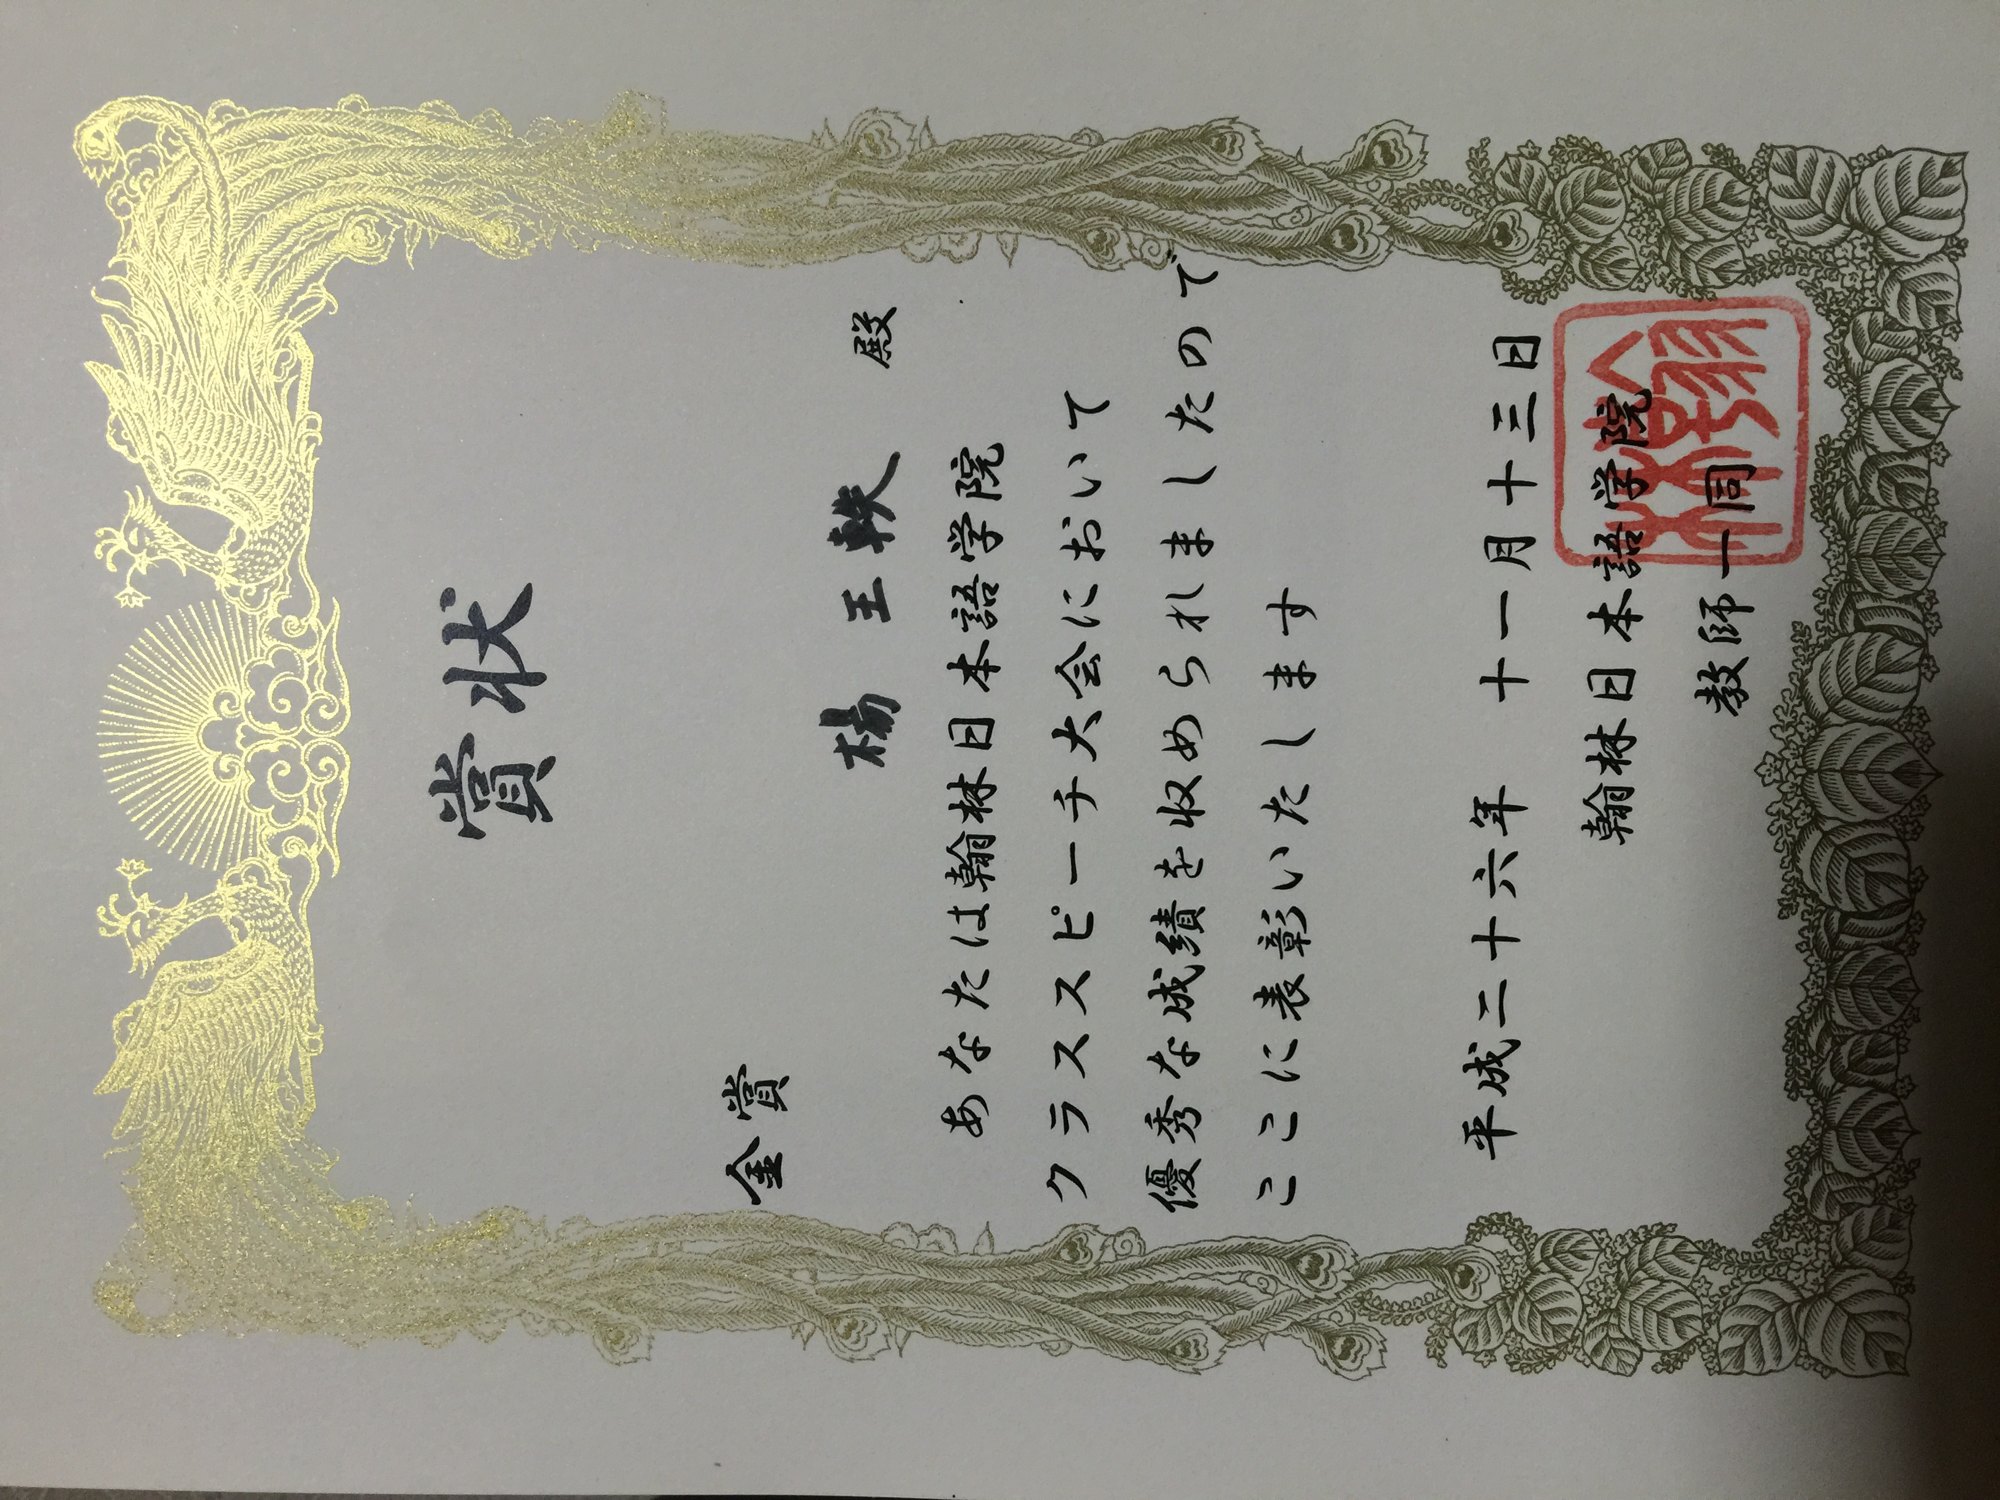 賞状
金賞
楊 王軼 殿
あなたは翰林日本語学院
クラススピーチ大会において
優秀な成績を収められましたので
ここに表彰いたします
平成二十六年 十一月十三日
翰林日本語学院
教師一同